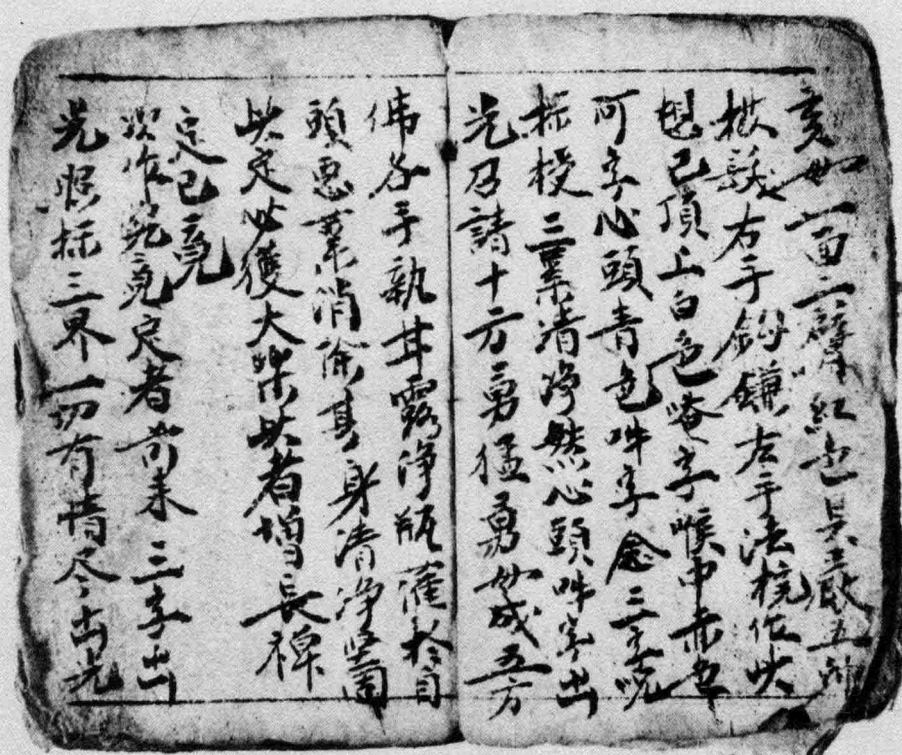 亥母一面二臂紅色具嚴五
拔髮右手鈎鐮左手法椀位此
想已頂上白色唵字喉中赤色
阿字心頭青色吽字念三字呪
採授三業清淨然心頭吽字出
光召請十方勇猛勇母成五方
佛各手執甘露淨瓶灌於自
頭惡業消除其身清淨堅固
此定必獲大樂此者增長禪
定已竟
次作究竟定者前来三字出
光照採三界一切有情尽出光